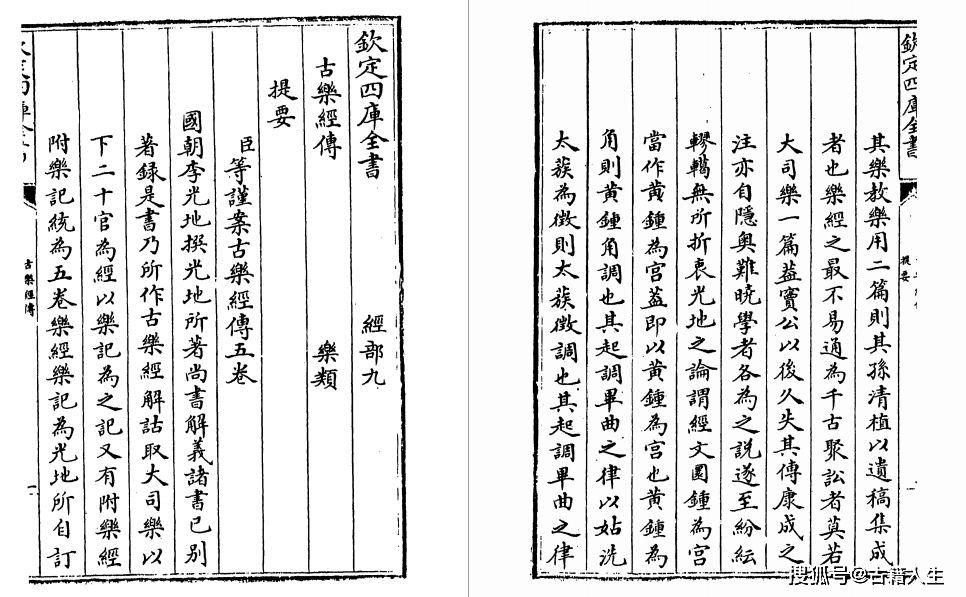 欽定四庫全書 經部九
古樂經傳 樂類
提要
臣等謹案古樂經傳五卷
國朝李光地撰光地所著尚書解義諸書已別
著録是書乃所作古樂經解詁取大司樂以
下二十官為經以樂記為之記又有附樂經
附樂記統為五卷樂經樂記為光地所自訂
古樂經傳
一
欽定四庫全書
提要
其樂教樂用二篇則其孫清植以遺稿集成
者也樂經之最不易通為千古聚訟者莫若
大司樂一篇葢竇公以後久失其傳康成之
注亦自隱奥難曉學者各為之説遂至紛紜
轇轕無所折衷光地之論謂經文圜鍾為宮
當作黄鍾為宫葢即以黄鍾為宫也黄鍾為
角則黄鍾角調也其起調畢曲之律以姑洗
太蔟為徴則太蔟徴調也其起調畢曲之律
搜狐号@古籍人生